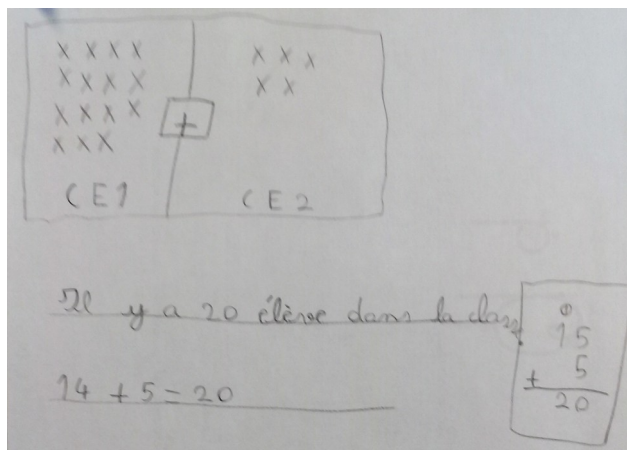 x x x x x x x
x x x x x x
x x x x
x x x
+
CE1 CE2
Il y a 20 élève dans la class
14 + 5 = 20
0
15
+ 5
20